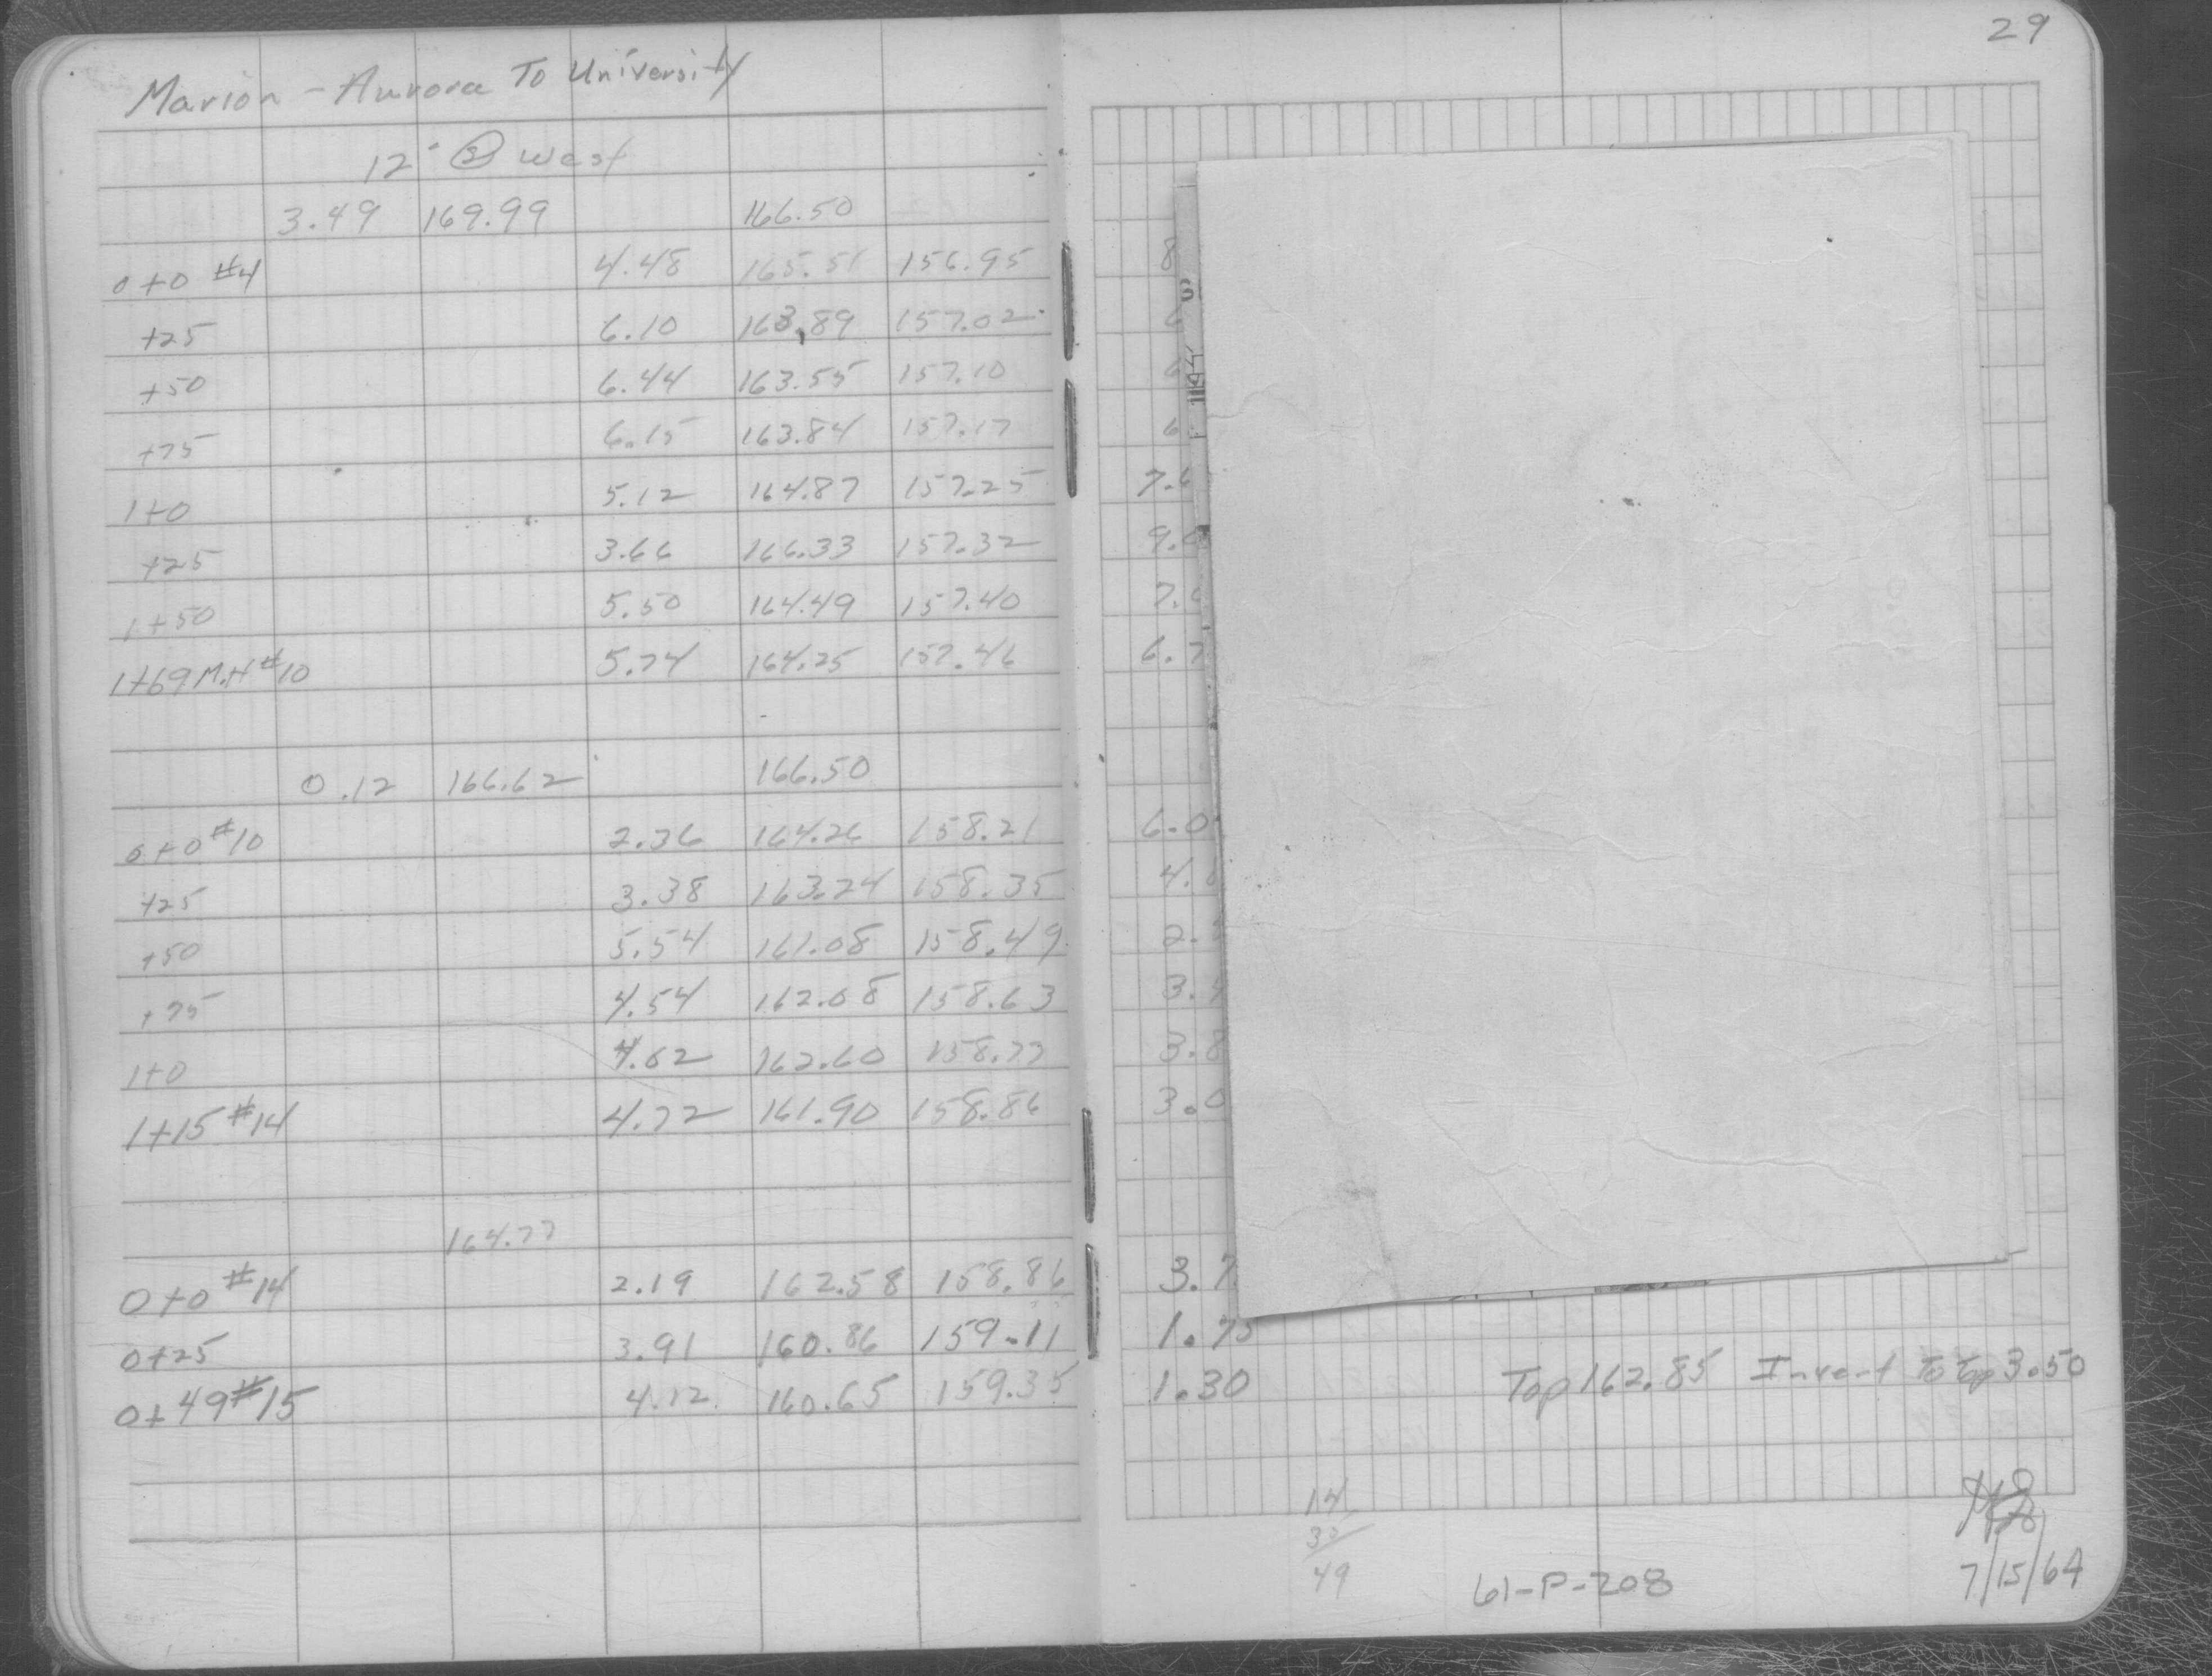 29
Marion - Aurora To University
12" Ⓢ West
3.49 169.99 166.50
0+0 #4 4.48 165.51 156.95 8
+25 6.10 163.89 157.02 6
+50 6.44 163.55 157.10 6
+75 6.15 163.84 157.17 6.
1+0 5.12 164.87 157.25 7.6
+25 3.66 166.33 157.32 9.0
1+50 5.50 164.49 157.40 7.0
1+69 M.H #10 5.74 164.25 157.46 6.7
0.12 166.62 166.50
0+0 #10 2.36 164.26 158.21 6.0
+25 3.38 163.24 158.35 4.
+50 5.54 161.08 158.49 2.
+75 4.54 162.08 158.63 3.
1+0 4.02 162.60 158.77 3.8
1+15 #14 4.72 161.90 158.86 3.0
164.77
0+0 #14 2.19 162.58 158.86 3.7
0+25 3.91 160.86 159.11 1.75
0+49 #15 4.12 160.65 159.35 1.30 Top 162.85 Invert To Top 3.50
14
35
49
61-P-208
7/15/64